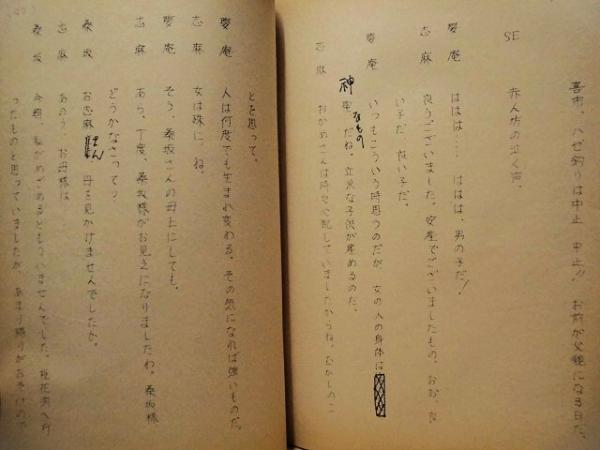 喜市、ハゼ釣りは中止 中止!! お前が父親になる日だ。
SE 赤ん坊の泣く声。
慶庵 ははは‥‥ ははは、男の子だ!
志麻 良うございました。安産でございましたもの。おお、良
い子だ 良い子だ。
慶庵 いつもこういう時思うのだが、女の人の身体は
神聖なものだね。立派な子供が産めるのだ。
志麻 おかめさんは時々心配していましたからね。むかしのこ
とを思って。
慶庵 人は何度でも生まれ変わる。その気になれば強いものだ。
志麻 女は殊に、ね。
慶庵 そう、桑坂さんの母上にしても。
志麻 あら、丁度、桑坂様がお見えになりましたわ。桑坂様
どうかなさって?
桑坂 お志麻さん 母を見かけませんでしたか。
志麻 あのう、お母様は
桑坂 今朝、私がめざめるともういませんでした。桂花寺へ行
ったものと思っていましたが、あまり帰りがおそいので